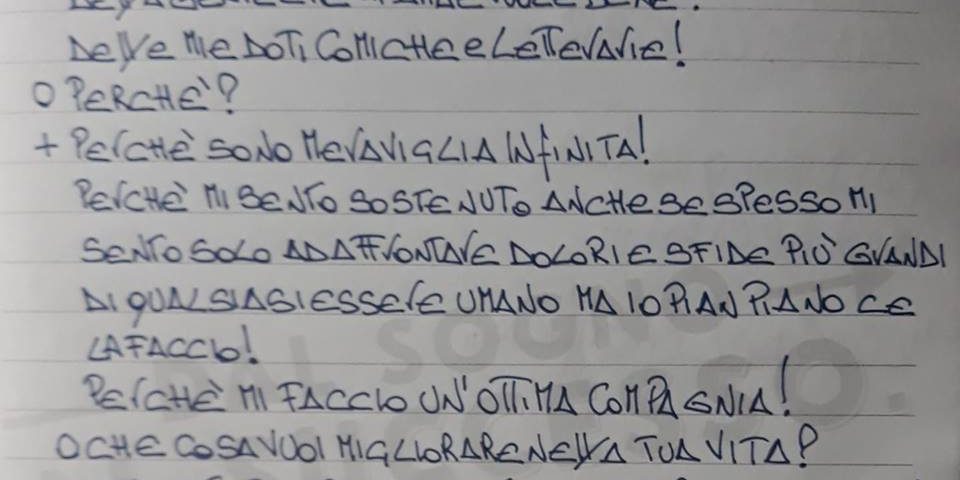 DELLE MIE DOTI COMICHE E LETTERARIE!
O PERCHÈ?
+ PERCHÈ SONO MERAVIGLIA INFINITA!
PERCHÈ MI SENTO SOSTENUTO ANCHE SE SPESSO MI
SENTO SOLO AD AFFRONTARE DOLORI E SFIDE PIÙ GRANDI
DI QUALSIASI ESSERE UMANO MA IO PIAN PIANO CE
LA FACCIO!
PERCHÈ MI FACCIO UN'OTTIMA COMPAGNIA!
O CHE COSA VUOI MIGLIORARE NELLA TUA VITA?
DAL SOGNO
SUCCESSO.